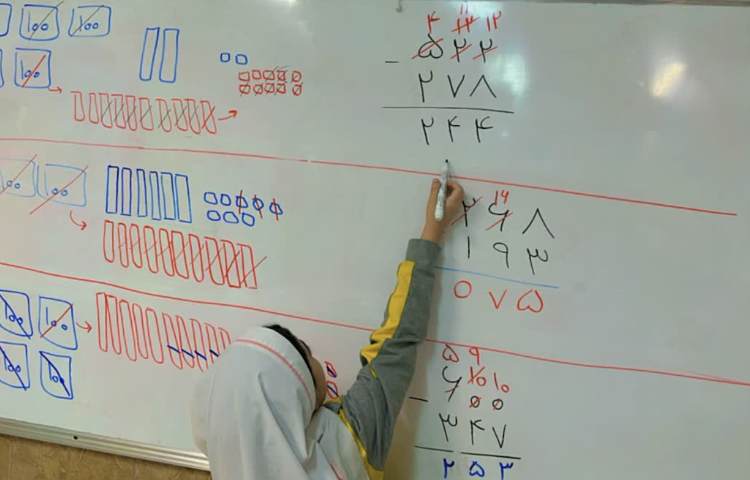 ۱۰۰ ۱۰۰
۱۰۰
۱۱
۴ ۱۲ ۱۲
۵ ۲ ۲
- ۲ ۷ ۸
۲ ۴ ۴
۱۰۰ ۱۰۰
۱۶
۲ ۶ ۸
۱ ۹ ۳
۰ ۷ ۵
۱۰۰ ۱۰۰
۱۰۰ ۱۰۰
۵ ۹
۱۰ ۱۰
۶ ۰ ۰
- ۳ ۴ ۷
۲ ۵ ۳